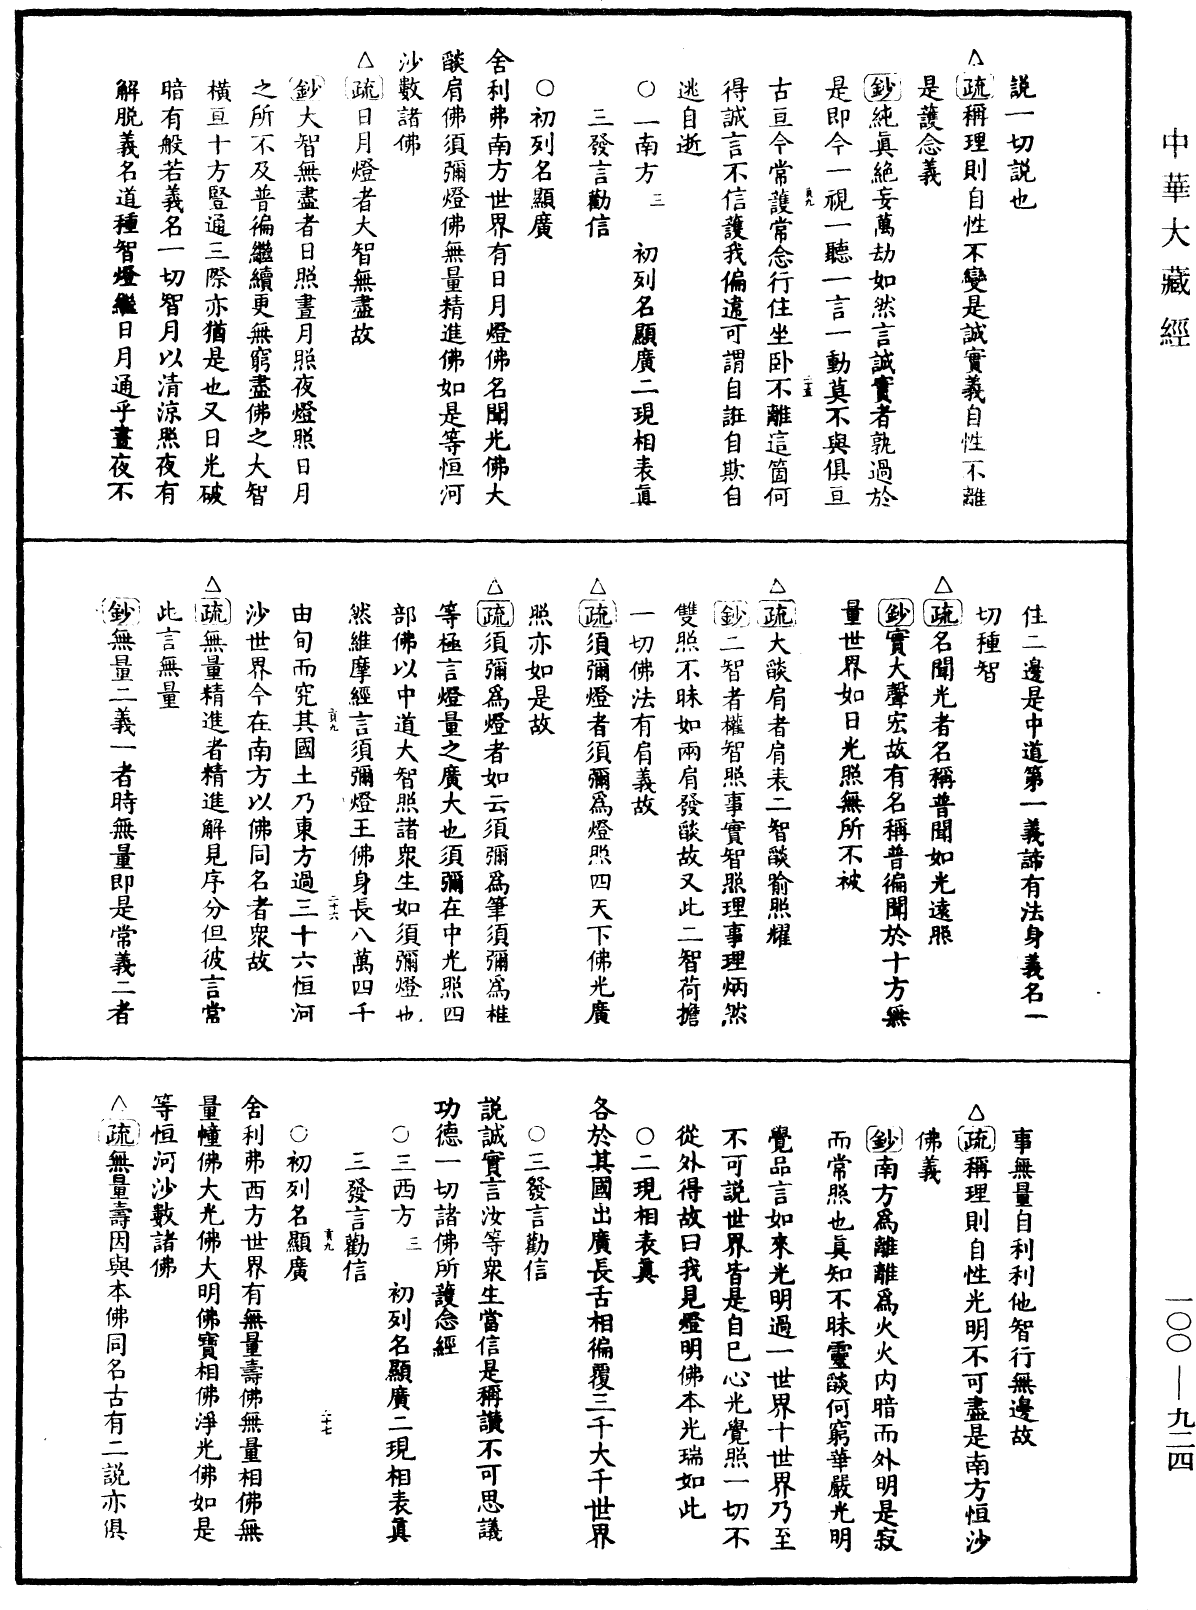 中華大藏經
説一切説也
△疏稱理則自性不變是誠實義自性不離
是護念義
鈔純眞絕妄萬劫如然言誠實者孰過於
是即今一視一聽一言一動莫不與俱亘
古亘今常護常念行住坐卧不離這箇何
得誠言不信護我偏遠可謂自誑自欺自
逃自逝
○二南方三 初列名顯廣二現相表眞
三發言勸信
○初列名顯廣
舍利弗南方世界有日月燈佛名聞光佛大
燄肩佛須彌燈佛無量精進佛如是等恒河
沙數諸佛
△疏日月燈者大智無盡故
鈔大智無盡者日照晝月照夜燈照日月
之所不及普徧繼續更無窮盡佛之大智
橫亘十方豎通三際亦猶是也又日光破
暗有般若義名一切智月以清涼照夜有
解脱義名道種智燈繼日月通乎晝夜不
住二邊是中道第一義諦有法身義名一
切種智
△疏名聞光者名稱普聞如光遠照
鈔實大聲宏故有名稱普徧聞於十方無
量世界如日光照無所不被
△疏大燄肩者肩表二智燄喻照耀
鈔二智者權智照事實智照理事理炳然
雙照不昧如兩肩發燄故又此二智荷擔
一切佛法有肩義故
△疏須彌燈者須彌爲燈照四天下佛光廣
照亦如是故
△疏須彌爲燈者如云須彌爲筆須彌爲椎
等極言燈量之廣大也須彌在中光照四
部佛以中道大智照諸衆生如須彌燈也
然維摩經言須彌燈王佛身長八萬四千
由旬而究其國土乃東方過三十六恒河
沙世界今在南方以佛同名者衆故
△疏無量精進者精進解見序分但彼言常
此言無量
鈔無量二義一者時無量即是常義二者
事無量自利利他智行無邊故
△疏稱理則自性光明不可盡是南方恒沙
佛義
鈔南方爲離離爲火火内暗而外明是寂
而常照也眞知不昧靈燄何窮華嚴光明
覺品言如來光明過一世界十世界乃至
不可説世界皆是自己心光覺照一切不
從外得故曰我見燈明佛本光瑞如此
○二現相表眞
各於其國出廣長舌相徧覆三千大千世界
○三發言勸信
説誠實言汝等衆生當信是稱讚不可思議
功德一切諸佛所護念經
○三西方三 初列名顯廣二現相表眞
三發言勸信
○初列名顯廣
舍利弗西方世界有無量壽佛無量相佛無
量幢佛大光佛大明佛寶相佛淨光佛如是
等恒河沙數諸佛
△疏無量壽因與本佛同名古有二説亦俱
一〇〇—九二四